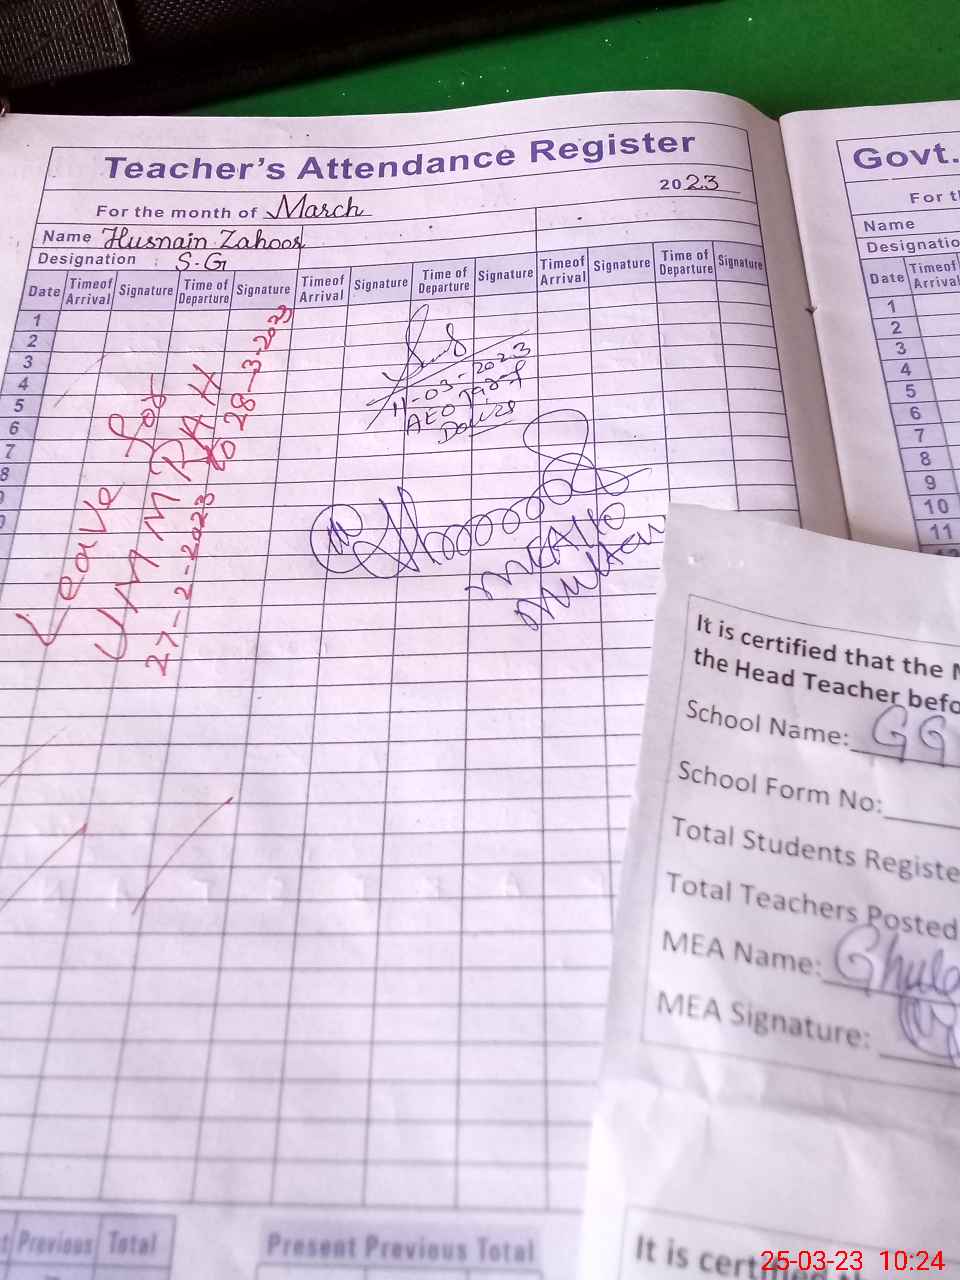 Teacher's Attendance Register
2023
For the month of March
Name Husnain Zahoor
Designation : S.G
Date Time of Arrival Signature Time of Departure Signature Time of Arrival Signature Time of Departure Signature Time of Arrival Signature Time of Departure Signature
1
2
3
4
5
6
7
8
Leave for
UMMRAH
27-2-2023 to 28-3-2023
11-03-2023
AEO
MEA
Multan
Govt.
For th
Name
Designatio
Date Time of Arrival
1
2
3
4
5
6
7
8
9
10
11
12
It is certified that the M
the Head Teacher befo
School Name: GG
School Form No:
Total Students Registe
Total Teachers Posted
MEA Name: Ghula
MEA Signature:
t Previous Total
Present Previous Total
It is certified
25-03-23 10:24